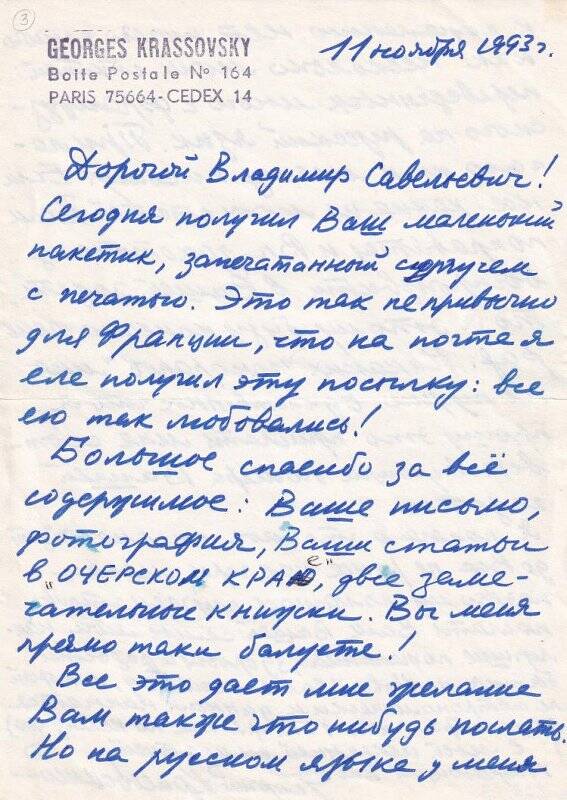 3
GEORGES KRASSOVSKY
Boite Postale Nº 164
PARIS 75664-CEDEX 14
11 ноября 1993 г.
Дорогой Владимир Савельевич!
Сегодня получил Ваш маленький
пакетик, запечатанный сургучем
с печатью. Это так непривычно
для Франции, что на почте я
еле получил эту посылку: все
ею так любовались!
Большое спасибо за всё
содержимое: Ваше письмо,
фотография, Ваши статьи
в "ОЧЕРСКОМ КРАЕ", две заме-
чательные книжки. Вы меня
прямо таки балуете!
Все это дает мне желание
Вам также что нибудь послать.
Но на русском языке у меня